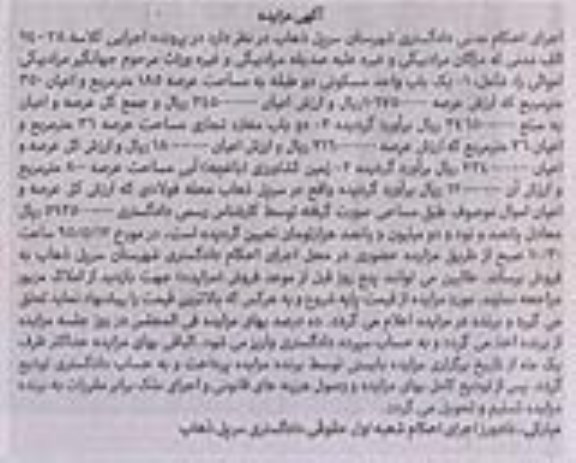 آگهی مزایده
اجرای احکام مدنی دادگستری شهرستان سرپل ذهاب در نظر دارد در پرونده اجرایی کلاسه
مدنی که مژگان مرادبیگی و غیره علیه صدیقه مرادبیگی و غیره وراث مرحوم جهانگیر مرادبیگی
اموالی را شامل: ۱- یک باب واحد مسکونی دو طبقه به مساحت عرصه ۱۸۵ مترمربع و اعیان ۳۵۰
مترمربع که ارزش عرصه ریال و ارزش اعیان ریال و جمع کل عرصه و اعیان
به مبلغ ریال برآورد گردیده ۲- دو باب مغازه تجاری مساحت عرصه ۳۶ مترمربع و
اعیان ۳۶ مترمربع که ارزش عرصه ریال و ارزش اعیان ریال و ارزش کل عرصه و
اعیان ریال برآورد گردیده ۳- زمین کشاورزی (باغچه) آبی مساحت عرصه مترمربع
و ارزش آن ریال برآورد گردیده واقع در سرپل ذهاب محله فولادی که ارزش کل عرصه و
اعیان اموال موصوف طبق مساحی صورت گرفته توسط کارشناس رسمی دادگستری ریال
معادل پانصد و نود و دو میلیون و پانصد هزارتومان تعیین گردیده است. در مورخ ساعت
صبح از طریق مزایده حضوری در محل اجرای احکام دادگستری شهرستان سرپل ذهاب به
فروش برساند. طالبین می توانند پنج روز قبل از موعد فروش (مزایده) جهت بازدید از املاک مزبور
مراجعه نمایند. مورد مزایده از قیمت پایه شروع و به هرکس که بالاترین قیمت را پیشنهاد نماید تعلق
می گیرد و برنده در مزایده اعلام می گردد. ده درصد بهای مزایده فی المجلس در روز جلسه مزایده
از برنده اخذ می گردد و به حساب سپرده دادگستری واریز می شود. الباقی بهای مزایده حداکثر ظرف
یک ماه از تاریخ برگزاری مزایده بایستی توسط برنده مزایده پرداخت و به حساب دادگستری تودیع
گردد. پس از تودیع کامل بهای مزایده و وصول هزینه های قانونی و اجرای ملک برابر مقررات به برنده
مزایده تسلیم و تحویل می گردد.
اجرای احکام شعبه اول حقوقی دادگستری سرپل ذهاب